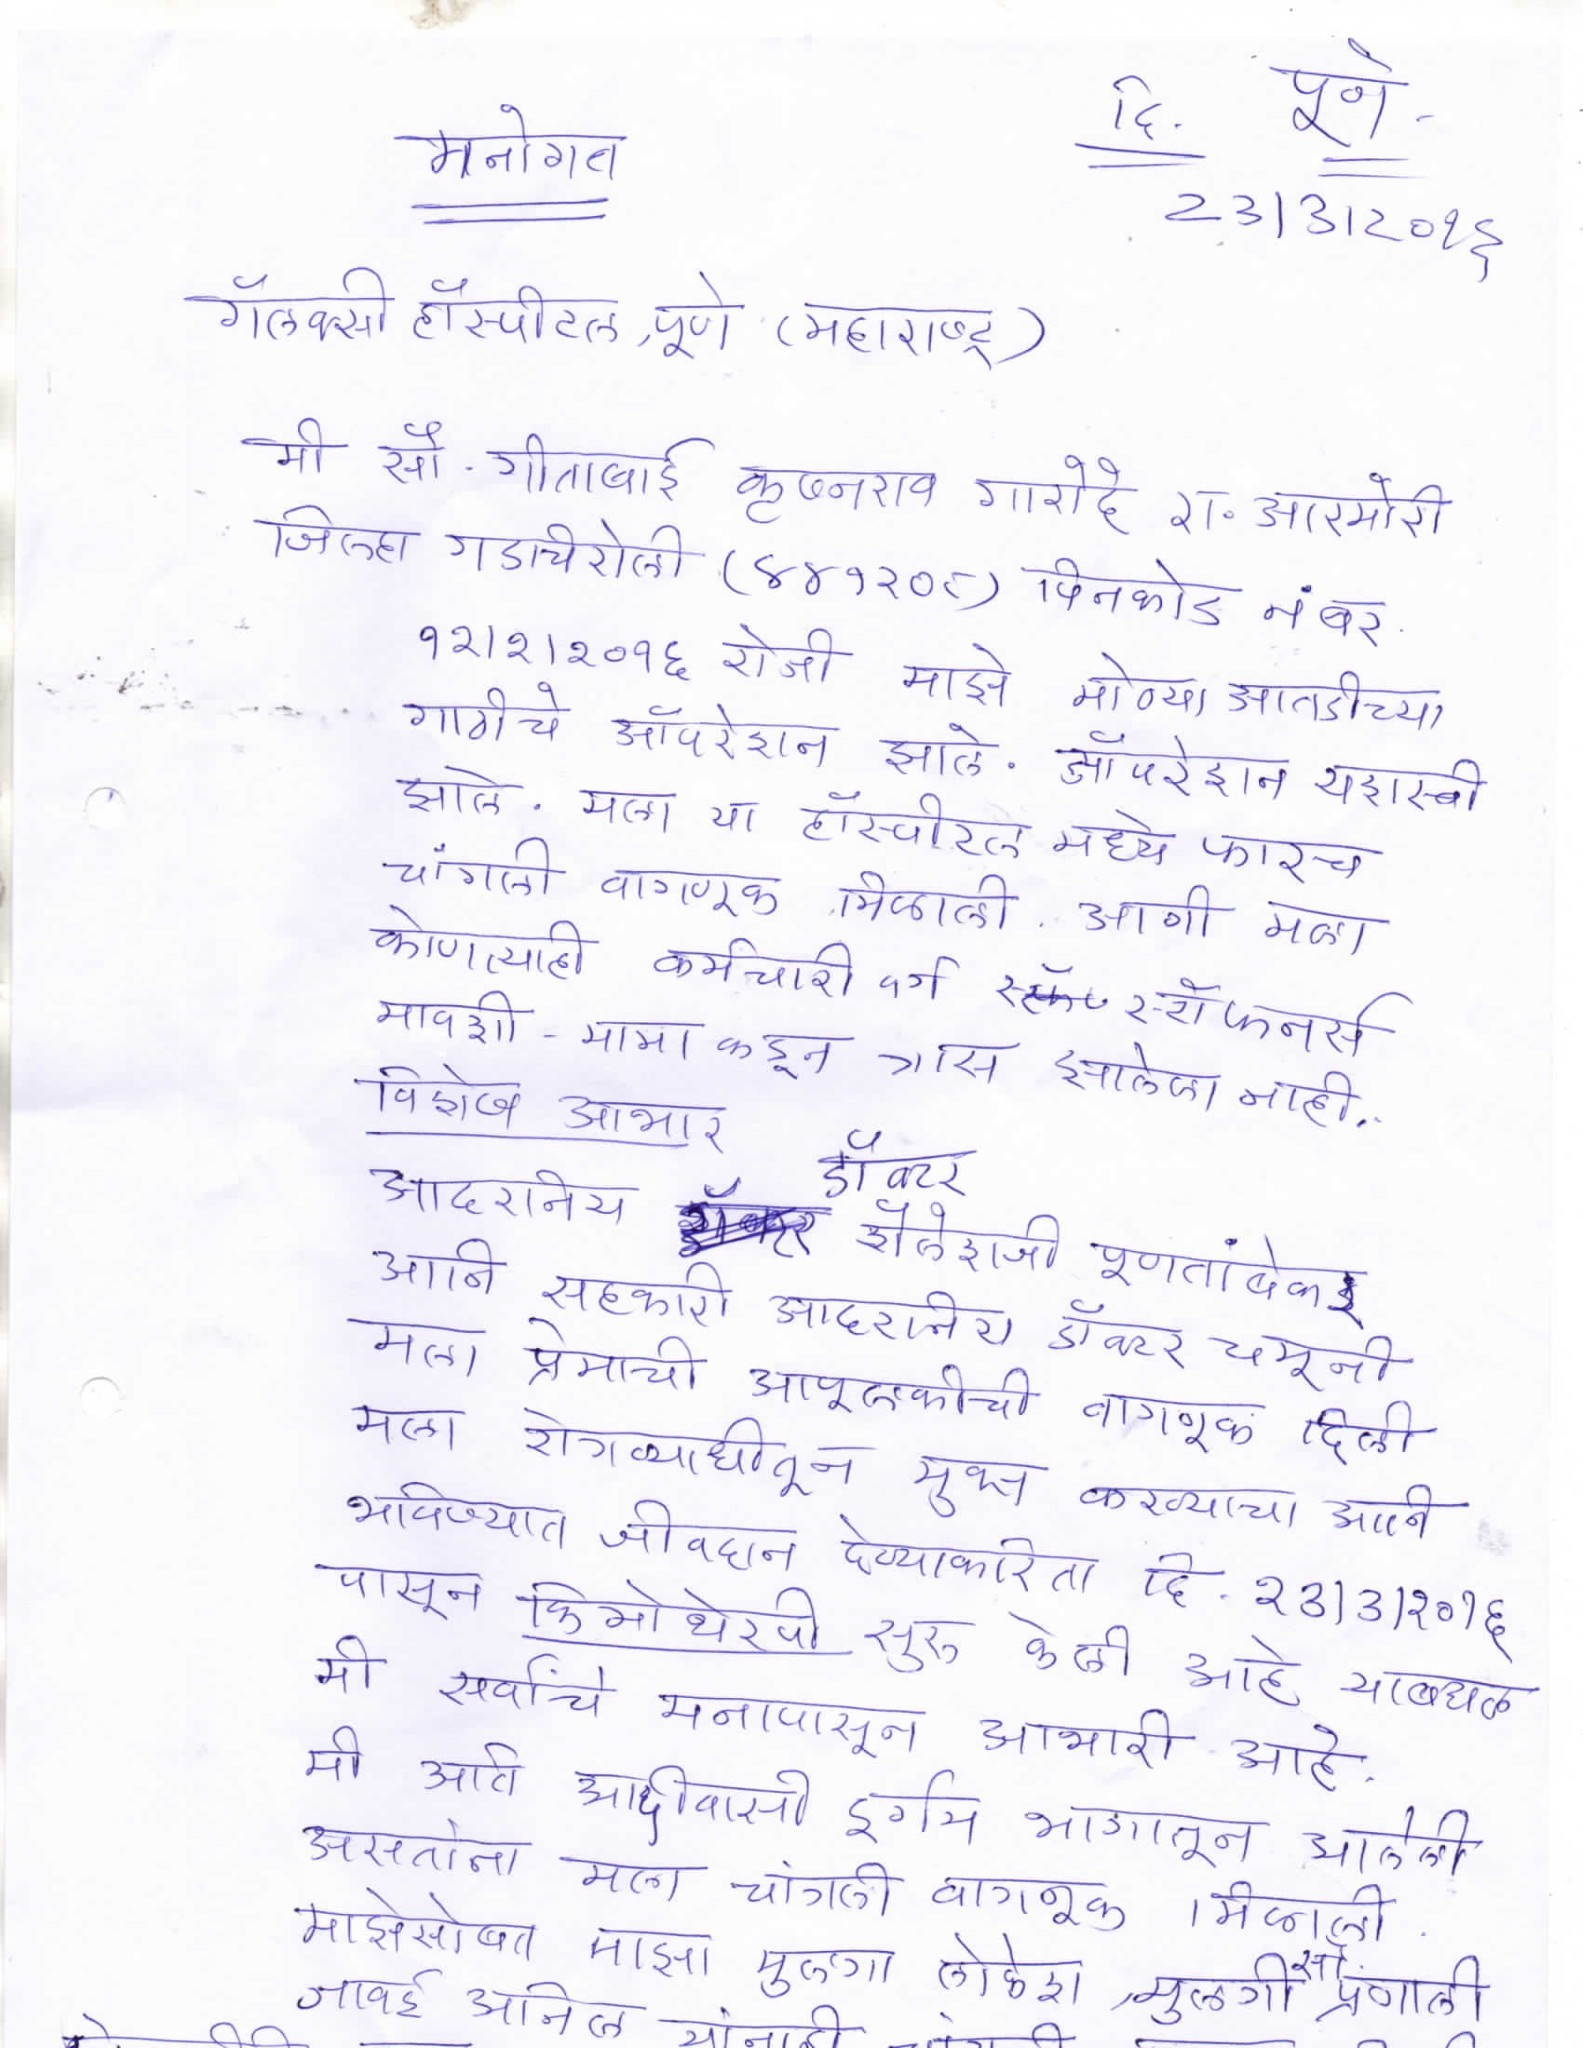 दि. पूणे -
मनोगत
23/3/2०१६
गॅलक्सी हॉस्पीटल, पूणे (महाराष्ट्र)
मी सौ. गीताबाई कृष्नराव गारोदे रा. आरमोरी
जिल्हा गडचिरोली (४४१२०८) पिनकोड नंबर.
१२/२/२०१६ रोजी माझे मोठ्या आतडीच्या
गाठीचे ऑपरेशन झाले. ऑपरेशन यशस्वी
झाले. मला या हॉस्पीटल मध्ये फारच
चांगली वागणूक मिळाली. आणी मला
कोणत्याही कर्मचारी वर्ग स्टॉफनर्स
मावशी - मामा कडून त्रास झालेला नाही.
विशेष आभार
आदरानिय डॉक्टर शैलेशजी पूणतांबेकर
आनि सहकारी आदरानिय डॉक्टर चमूनी
मला प्रेमाची आपूलकीची वागणूक दिली
मला रोगव्याधीतून मुक्त करण्याचा आनि
भविष्यात जीवदान देण्याकरिता दि. २३/३/२०१६
पासून किमोथेरपी सुरू केली आहे याबद्दल
मी सर्वांचे मनापासून आभारी आहे.
मी अति आदीवासी दुर्गम भागातून आलेली
असतांना मला चांगली वागणूक मिळाली.
माझेसोबत माझा मुलगा लोकेश, मुलगी सौ. प्रणाली
जावई अनिल यांनाही चांगली